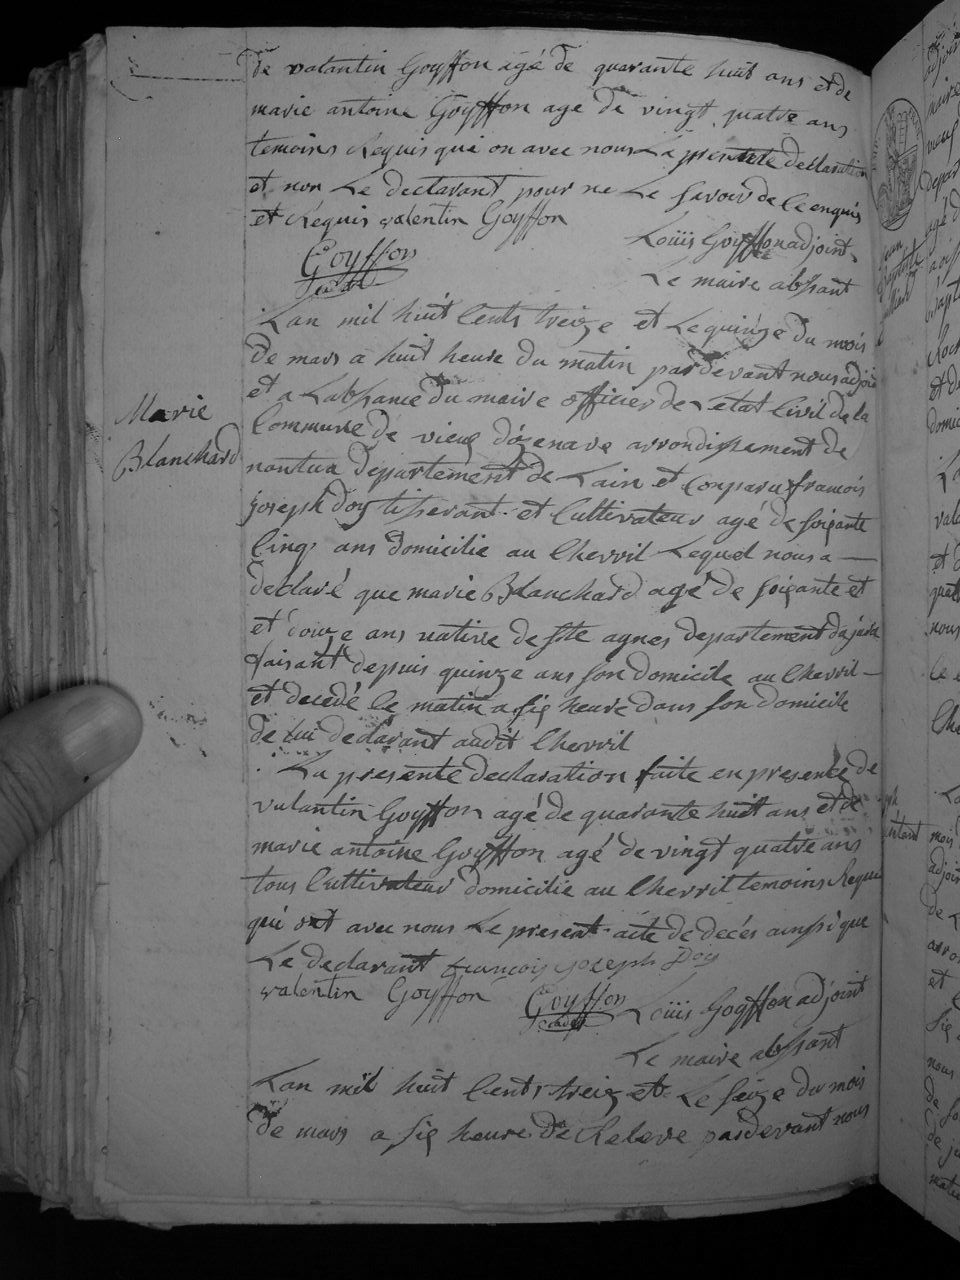 de valantin Goyffon agé de quarante huit ans et de
marie antoine Goyffon age de vingt quatre ans
temoins Requis qui on avec nous La presente declaration
et non Le declarant pour ne Le savoir de ce enquis
et Requis valentin Goyffon
Goyffon
Louïs Goyffon adjoint
Le maire abssant
Lan mil huit Cents treize et Le quinze du mois
De mars a huit heure du matin pardevant nous adjoin
et a Labssance du maire officier de Letat Civil de la
Commune de vieug d'izenave arrondissement de
nantua departement de Lain et Comparu francois
joseph Doy tisserant et Cultivateur agé de soigante
Cinq ans domicilie au Chevril Lequel nous a
declaré que marie Blanchard agé de soigante et
et douze ans native de Ste agnes departement du jura
faisant depuis quinze ans son domicile au Chevril
et decedé Ce matin a sig heure dans son domicile
de lui declarant audit Chevril
Marie
Blanchard
La presente declaration faite en presence de
valantin Goyffon agé de quarante huit ans et de
marie antoine Goyffon agé de vingt quatre ans
tous Cultivateur domicilie au Chevril temoins Requi
qui ont avec nous Le present acte de decés ainssi que
Le declarant françois joseph Doy
valentin Goyffon
Goyffon
Louïs Goyffon adjoint
Le maire abssant
Lan mil huit Cents treize et Le seize du mois
De mars a sig heure de Releve pardevant nous